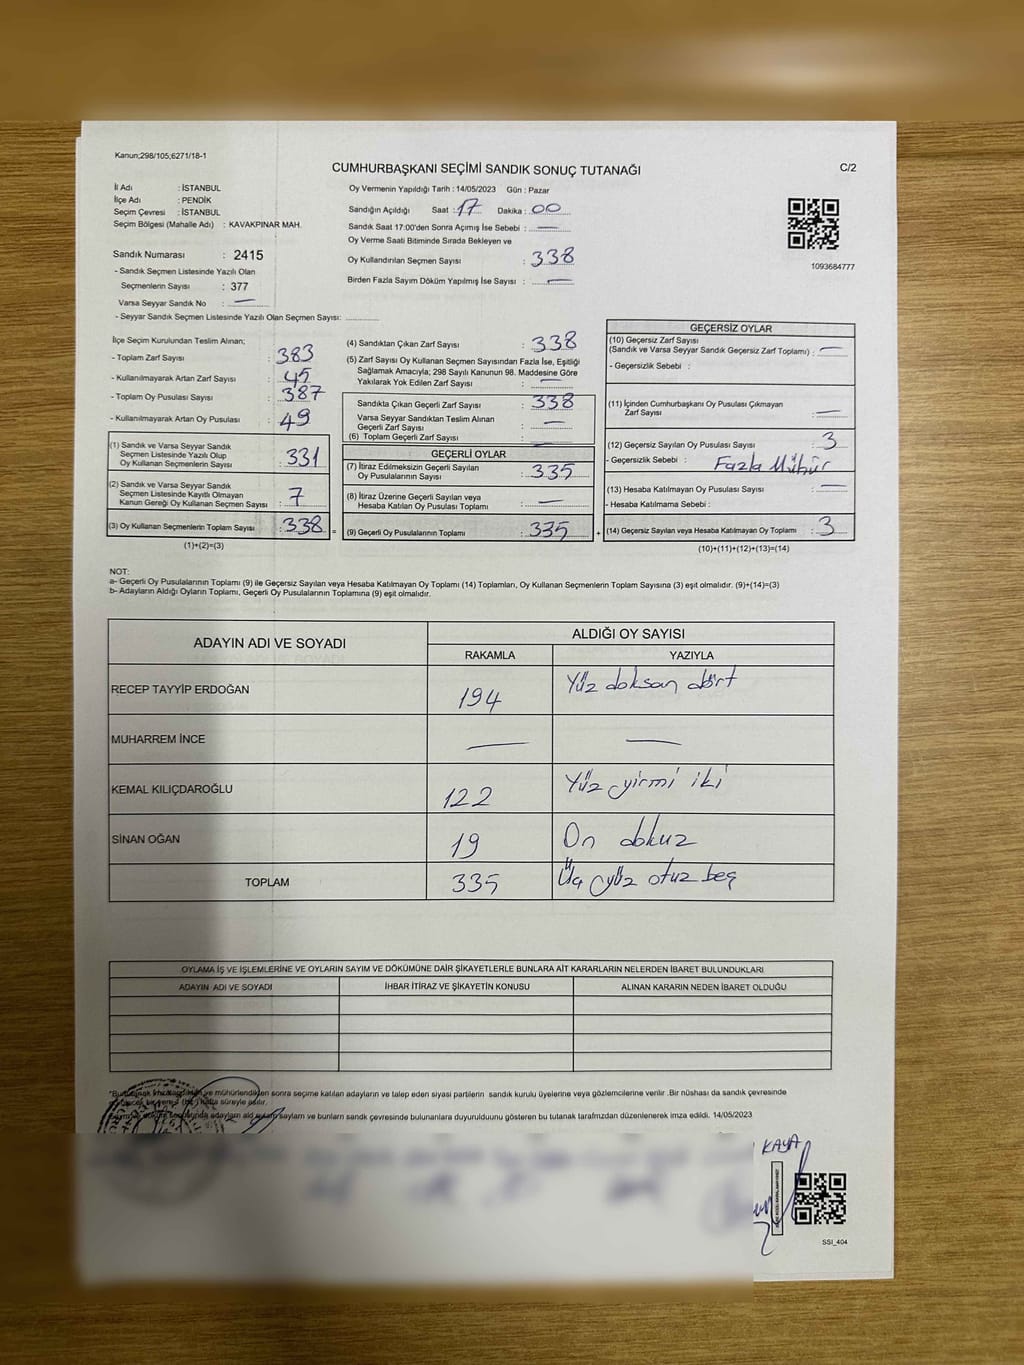 Kanun;298/105;6271/18-1
CUMHURBAŞKANI SEÇİMİ SANDIK SONUÇ TUTANAĞI
C/2
İl Adı : İSTANBUL
İlçe Adı : PENDİK
Seçim Çevresi : İSTANBUL
Seçim Bölgesi (Mahalle Adı) : KAVAKPINAR MAH.
Sandık Numarası : 2415
- Sandık Seçmen Listesinde Yazılı Olan
Seçmenlerin Sayısı : 377
Varsa Seyyar Sandık No : —
- Seyyar Sandık Seçmen Listesinde Yazılı Olan Seçmen Sayısı: ............
Oy Vermenin Yapıldığı Tarih : 14/05/2023 Gün : Pazar
Sandığın Açıldığı Saat : 17 Dakika : 00
Sandık Saat 17:00'den Sonra Açımış İse Sebebi : —
Oy Verme Saati Bitiminde Sırada Bekleyen ve
Oy Kullandırılan Seçmen Sayısı : 338
Birden Fazla Sayım Döküm Yapılmış İse Sayısı : —
1093684777
İlçe Seçim Kurulundan Teslim Alınan;
- Toplam Zarf Sayısı : 383
- Kullanılmayarak Artan Zarf Sayısı : 45
- Toplam Oy Pusulası Sayısı : 387
- Kullanılmayarak Artan Oy Pusulası : 49
(1) Sandık ve Varsa Seyyar Sandık
Seçmen Listesinde Yazılı Olup
Oy Kullanan Seçmenlerin Sayısı : 331
(2) Sandık ve Varsa Seyyar Sandık
Seçmen Listesinde Kayıtlı Olmayan
Kanun Gereği Oy Kullanan Seçmen Sayısı : 7
(3) Oy Kullanan Seçmenlerin Toplam Sayısı : 338 =
(1)+(2)=(3)
(4) Sandıktan Çıkan Zarf Sayısı : 338
(5) Zarf Sayısı Oy Kullanan Seçmen Sayısından Fazla İse, Eşitliği
Sağlamak Amacıyla; 298 Sayılı Kanunun 98. Maddesine Göre
Yakılarak Yok Edilen Zarf Sayısı : —
Sandıkta Çıkan Geçerli Zarf Sayısı : 338
Varsa Seyyar Sandıktan Teslim Alınan
Geçerli Zarf Sayısı : —
(6) Toplam Geçerli Zarf Sayısı :
GEÇERLİ OYLAR
(7) İtiraz Edilmeksizin Geçerli Sayılan
Oy Pusulasının Sayısı : 335
(8) İtiraz Üzerine Geçerli Sayılan veya
Hesaba Katılan Oy Pusulası Toplamı : —
(9) Geçerli Oy Pusulalarının Toplamı : 335 +
GEÇERSİZ OYLAR
(10) Geçersiz Zarf Sayısı
(Sandık ve Varsa Seyyar Sandık Geçersiz Zarf Toplamı) : —
- Geçersizlik Sebebi :
(11) İçinden Cumhurbaşkanı Oy Pusulası Çıkmayan
Zarf Sayısı : —
(12) Geçersiz Sayılan Oy Pusulası Sayısı : 3
- Geçersizlik Sebebi : Fazla Mühür
(13) Hesaba Katılmayan Oy Pusulası Sayısı : —
- Hesaba Katılmama Sebebi :
(14) Geçersiz Sayılan veya Hesaba Katılmayan Oy Toplamı : 3
(10)+(11)+(12)+(13)=(14)
NOT:
a- Geçerli Oy Pusulalarının Toplamı (9) ile Geçersiz Sayılan veya Hesaba Katılmayan Oy Toplamı (14) Toplamları, Oy Kullanan Seçmenlerin Toplam Sayısına (3) eşit olmalıdır. (9)+(14)=(3)
b- Adayların Aldığı Oyların Toplamı, Geçerli Oy Pusulalarının Toplamına (9) eşit olmalıdır.
ADAYIN ADI VE SOYADI
ALDIĞI OY SAYISI
RAKAMLA YAZIYLA
RECEP TAYYİP ERDOĞAN 194 Yüz doksan dört
MUHARREM İNCE — —
KEMAL KILIÇDAROĞLU 122 Yüz yirmi iki
SİNAN OĞAN 19 On dokuz
TOPLAM 335 Üç yüz otuz beş
OYLAMA İŞ VE İŞLEMLERİNE VE OYLARIN SAYIM VE DÖKÜMÜNE DAİR ŞİKAYETLERLE BUNLARA AİT KARARLARIN NELERDEN İBARET BULUNDUKLARI
ADAYIN ADI VE SOYADI İHBAR İTİRAZ VE ŞİKAYETİN KONUSU ALINAN KARARIN NEDEN İBARET OLDUĞU
ve mühürlendikten sonra seçime katılan adayların ve talep eden siyasi partilerin sandık kurulu üyelerine veya gözlemcilerine verilir .Bir nüshası da sandık çevresinde
hafta süreyle asılır.
adayların aldığı oyların sayları ve bunların sandık çevresinde bulunanlara duyurulduunu gösteren bu tutanak tarafımzdan düzenlenerek imza edildi. 14/05/2023
KAYA
SSI_404